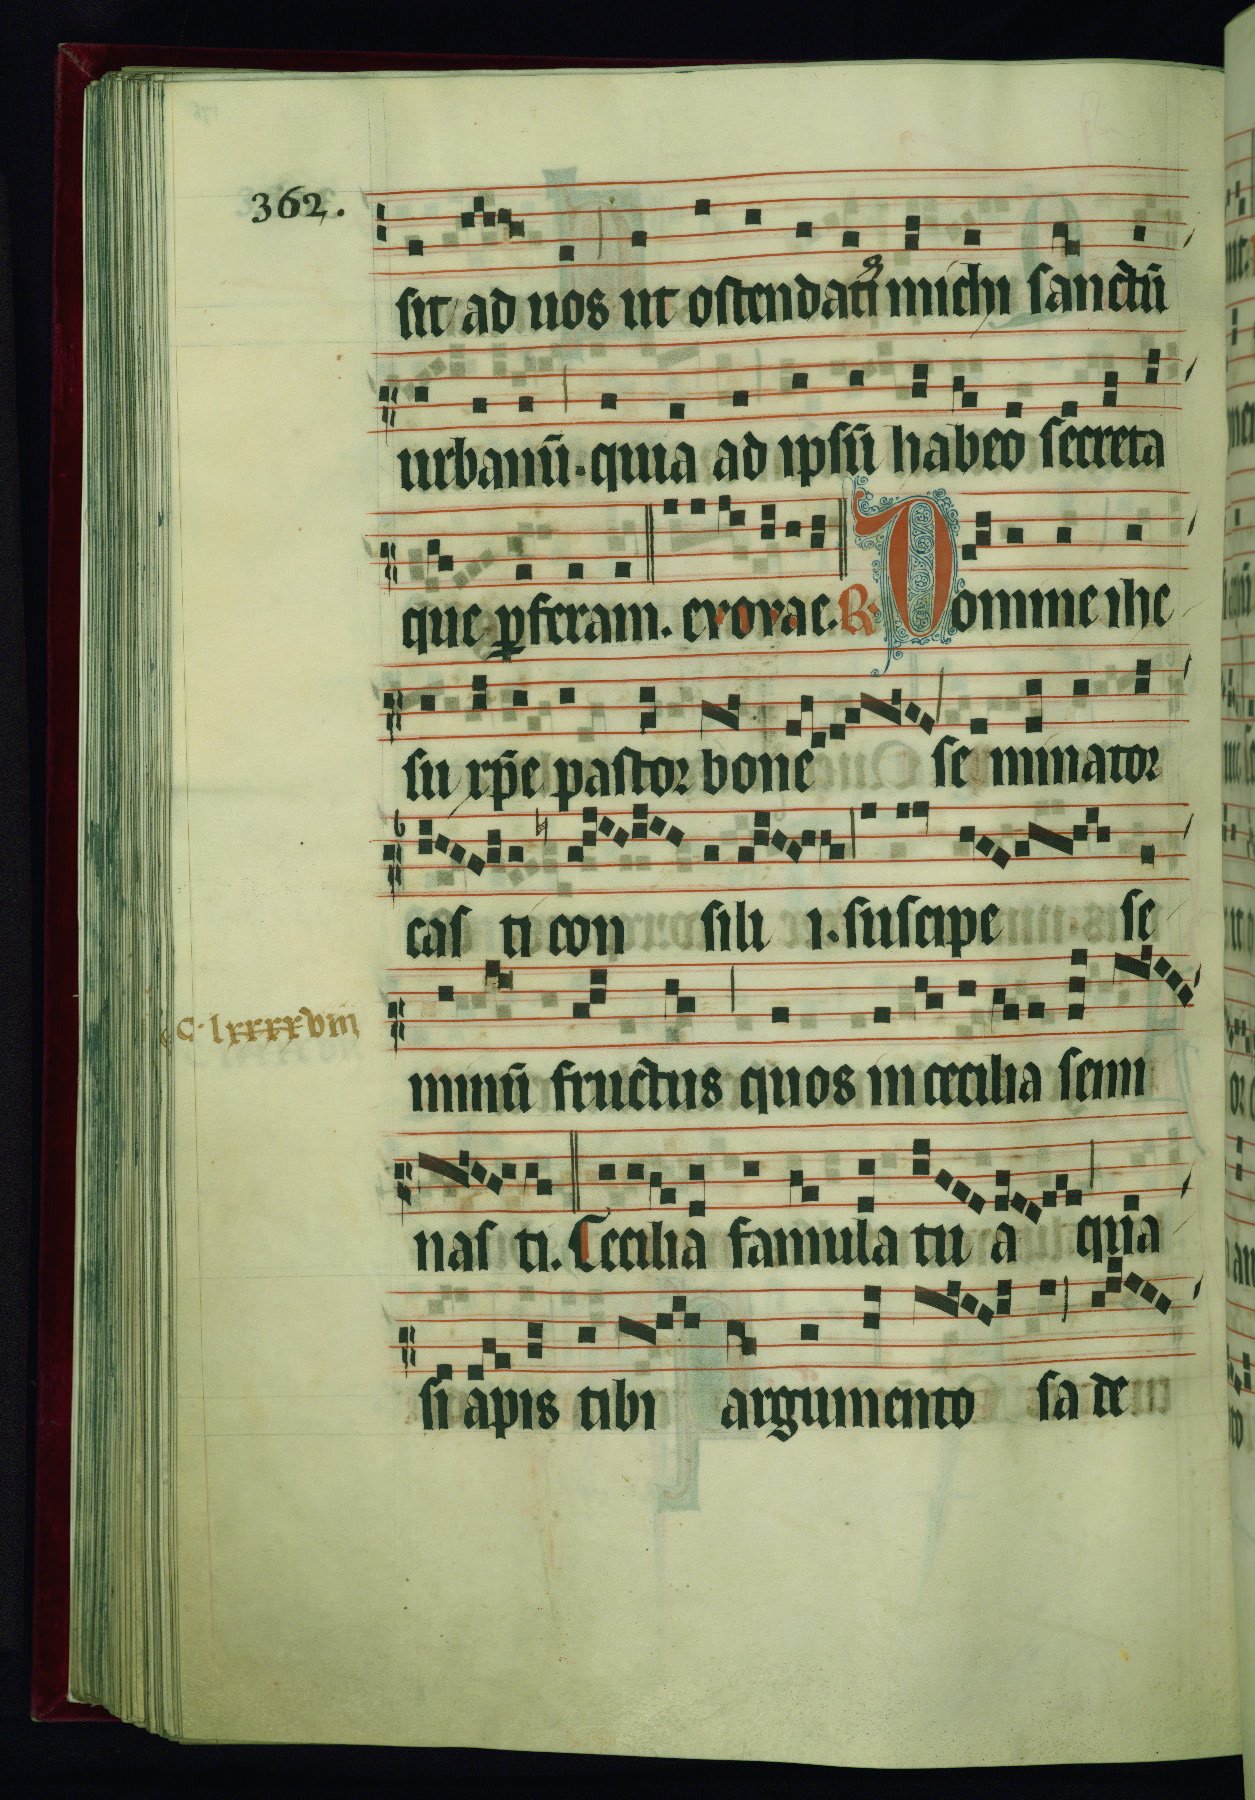 362.
sit ad uos ut ostendatꝰ michi sanctū
urbanū. quia ad ipsū habeo secreta
que ꝑferam. evovae. R. Domine ihe
su xp̄e pastor bone se minator
cas ti con sili i. suscipe se
minū fructus quos in cecilia semi
C. lxxxxviii
nas ti. Cecilia famula tu a qua
si apis tibi argumento sa de